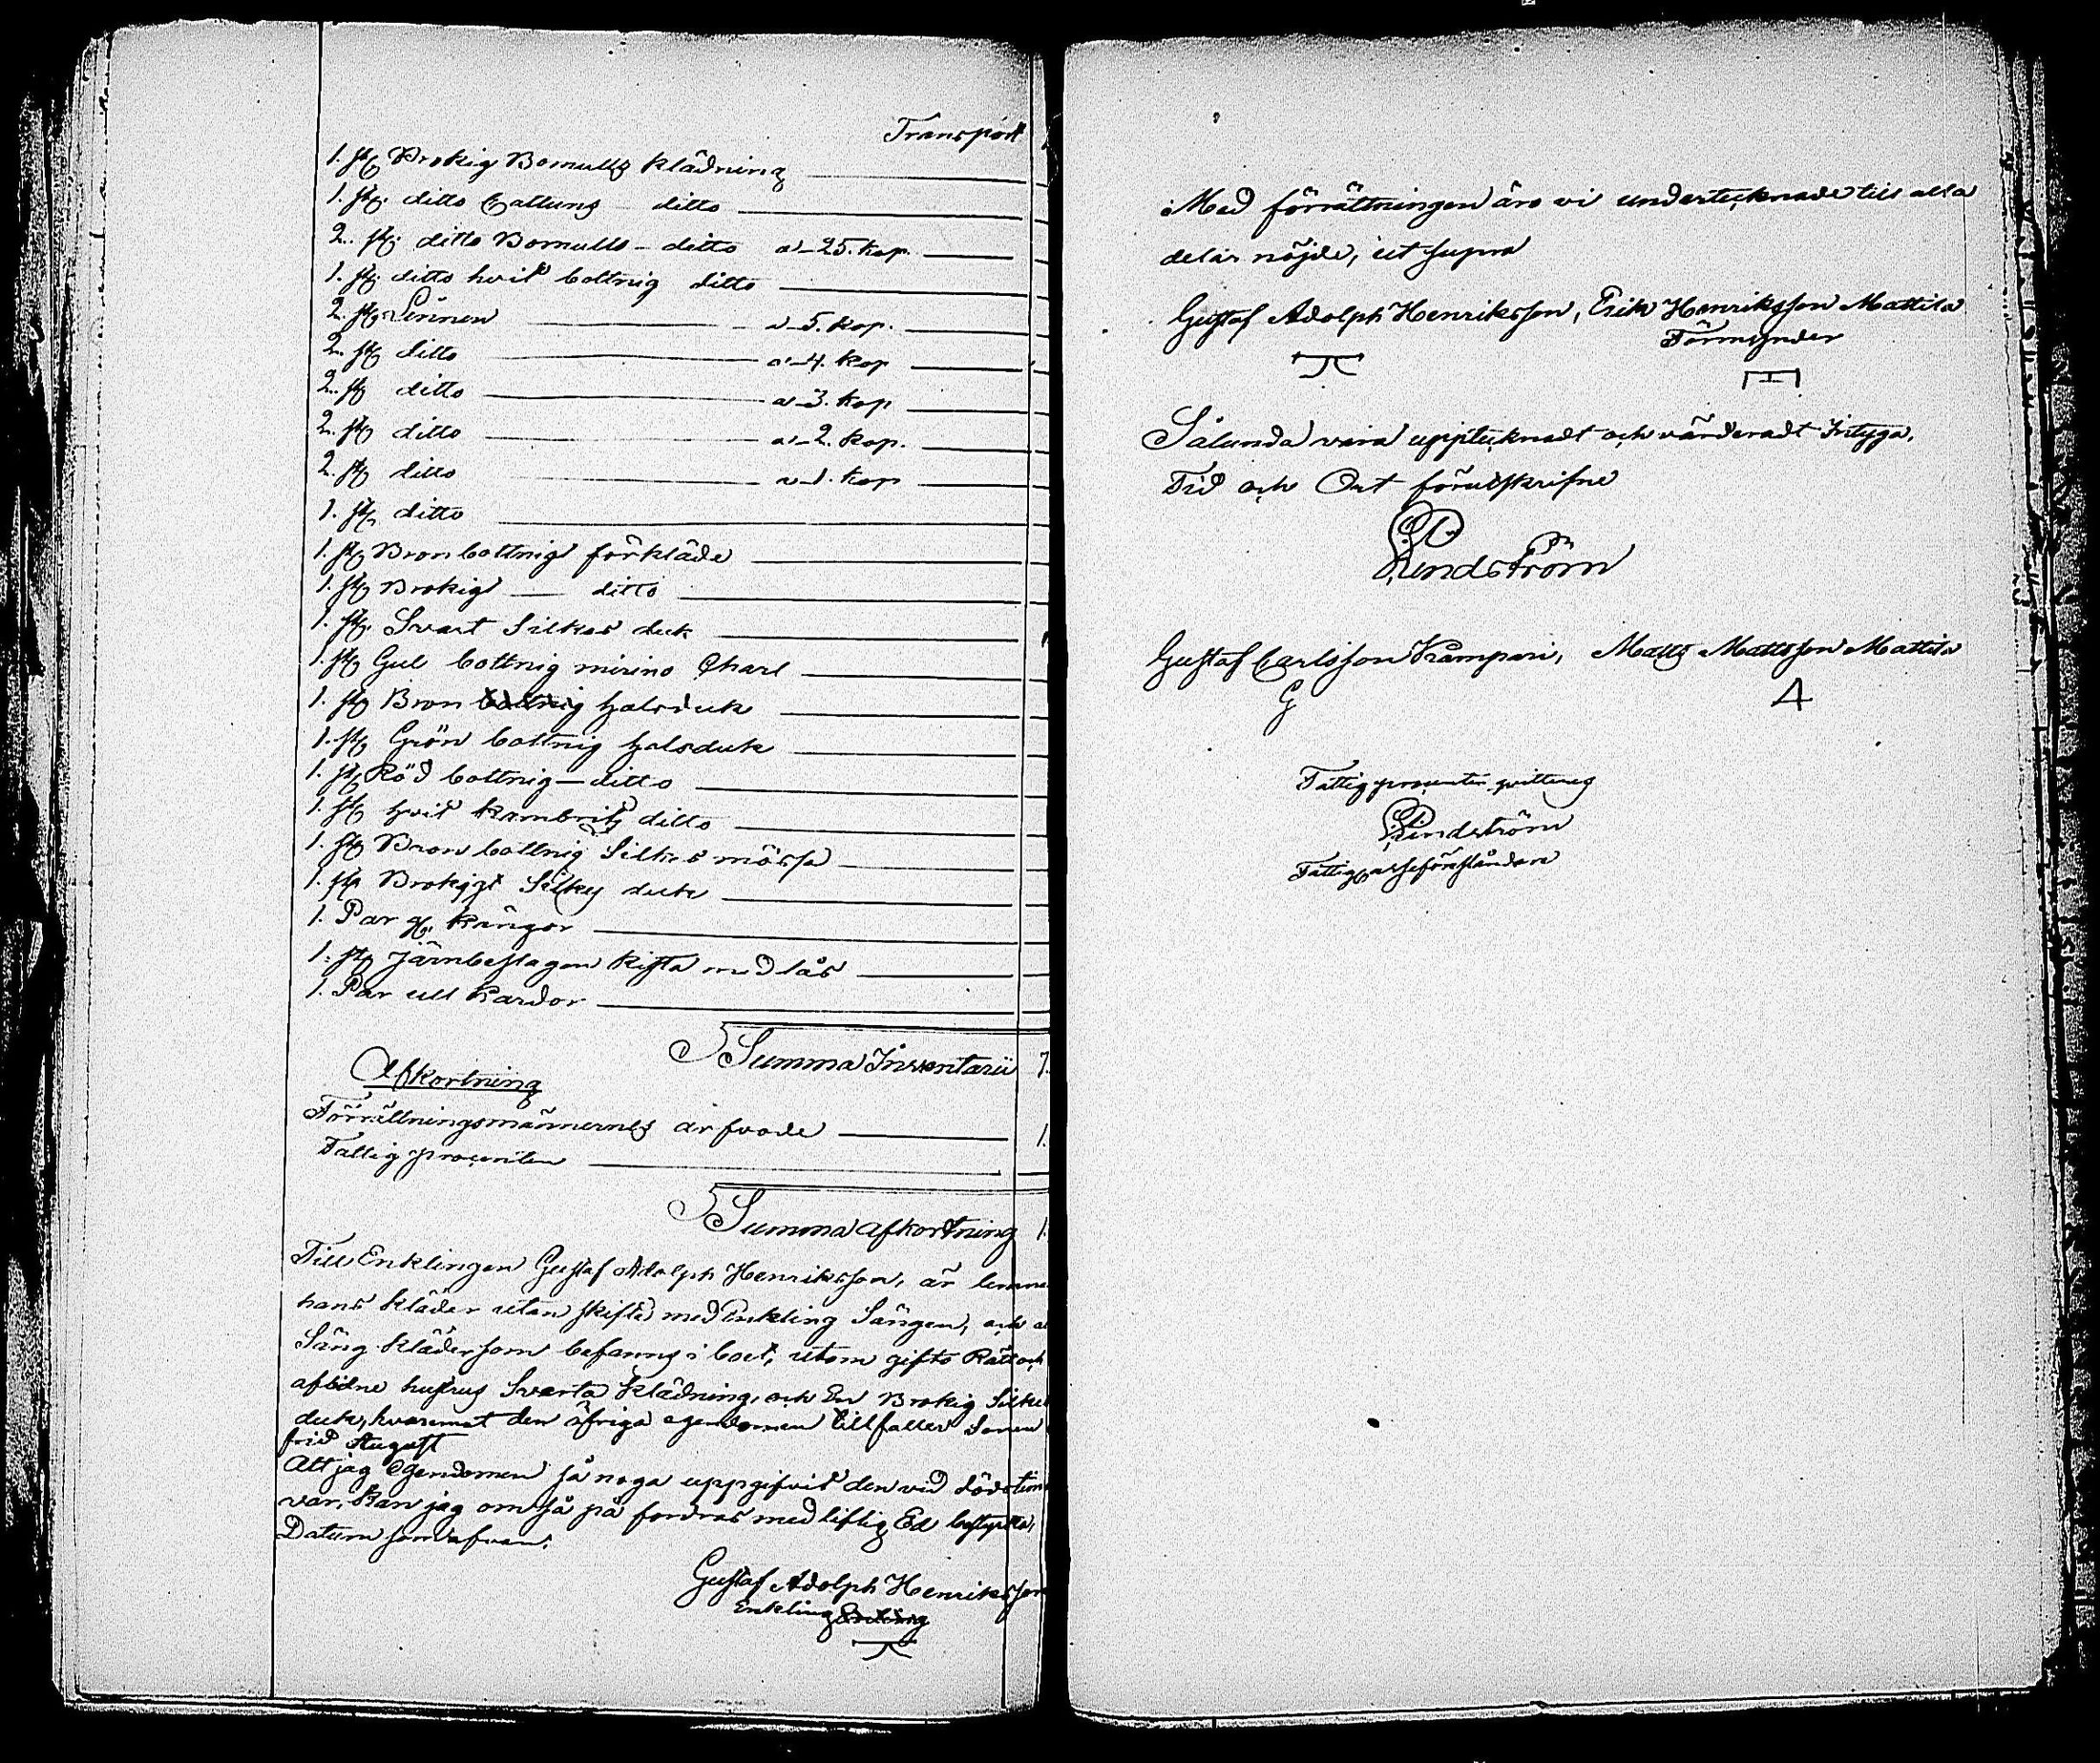 Transport
1. st. Brokig Bomulls klädning
1. st. ditto Cattuns ditto
2. st. ditto Bomulls - ditto a 25. kop.
1. st. ditto hvit bottnig ditto
2. st. Linnen a 5. kop.
2. st. ditto a 4. kop
2. st. ditto a 3. kop
2. st. ditto a 2. kop.
2. st. ditto a 1. kop
1. st. ditto
1. st. Bron bottnigt förkläde
1. st. Brokigt ditto
1. st. Svart Silkes duk
1. st. Gul bottnig mirino Charl
1. st. Bron halsduk
1. st. Grön bottnig halsduk
1. st. Röd bottnig ditto
1. st. hvit kambrits ditto
1. st. Bron bottnig Silkes mössa
1. st. Brokigt Silkes duk
1. Par kängor
1. st. Järnbeslagen kista med lås
1. Par ull kardor
Summa Inventarii 7.
Afkortning
Förrättningsmännernes arfvode 1.
Fattig procenten
Summa afkortning 1.
Till Enklingen Gustaf Adolph Henriksson, är lemna
hans kläder utan skifte med Enkling Sängen, och al
Säng kläder som befanns i boet, utom gifto Rätt och
aflidne hustrus Svarta klädning, och En Brokig Silkes
duk, hvaremot den öfriga egendomen tillfaller Sonen
frid August
Att jag Egendomen så noga uppgifvit den vid dödstim
var, kan jag om så på fordras med liflig Ed bestyrka,
Datum som ofvan.
Gustaf Adolph Henriksson
Enkling Enkling
Med förrättningen äro vi undertecknade till alla
delar nöjde, ut supra
Gustaf Adolph Henriksson, Erik Henriksson Mattila
Förmynder
Sålunda vara upptecknadt och värderadt Intyga,
Tid och Ort förutskrifne
Lindström
Gustaf Carlsson Krampari, Matts Mattsson Mattila
G
Fattig procenten qvitteras
Lindström
Fattigcasseföreståndare